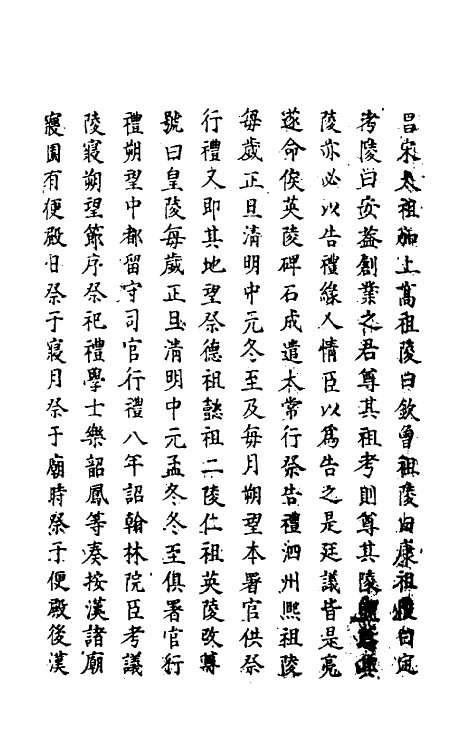 昌宋太祖加上高祖陵曰欽曾祖陵曰康祖陵曰定
考陵曰安葢創業之君尊其祖考則尊其陵
陵亦必以告禮緣人情臣以爲告之是廷議皆是亮
遂命俟英陵碑石成遣太常行祭告禮泗州熈祖陵
每歲正旦清明中元冬至及每月朔望本署官供祭
行禮又即其地望祭德祖懿祖二陵仁祖英陵改尊
號曰皇陵每歲正旦清明中元孟冬冬至俱署官行
禮朔望中都留守司官行禮八年詔翰林院臣考議
陵寢朔望節序祭祀禮學士樂韶鳳等奏按漢諸廟
寢園有便殿日祭于寢月祭于廟時祭于便殿後漢